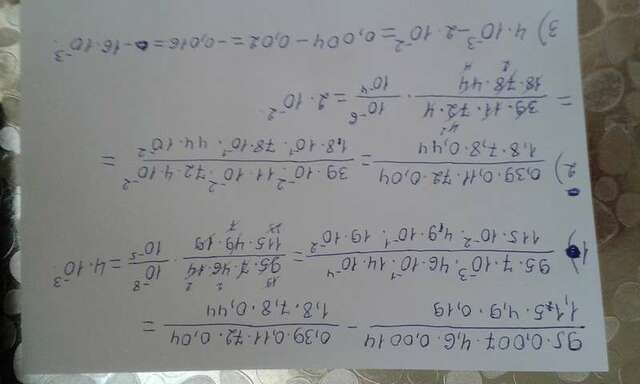 95·0,007·4,6·0,0014 / 1,15·4,9·0,19 − 0,39·0,11·72·0,04 / 1,8·7,8·0,44 =
1) 95·7·10⁻³·46·10⁻¹·14·10⁻⁴ / 115·10⁻²·49·10⁻¹·19·10⁻² = 95·7·46·14 / 115·49·19 · 10⁻⁸ / 10⁻⁵ = 4·10⁻³
2) 0,39·0,11·72·0,04 / 1,8·7,8·0,44 = 39·10⁻²·11·10⁻²·72·4·10⁻² / 18·10⁻¹·78·10⁻¹·44·10⁻² =
= 39·11·72·4 / 18·78·44 · 10⁻⁶ / 10⁻⁴ = 2·10⁻²
3) 4·10⁻³−2·10⁻² = 0,004 − 0,02 = −0,016 = −16·10⁻³.